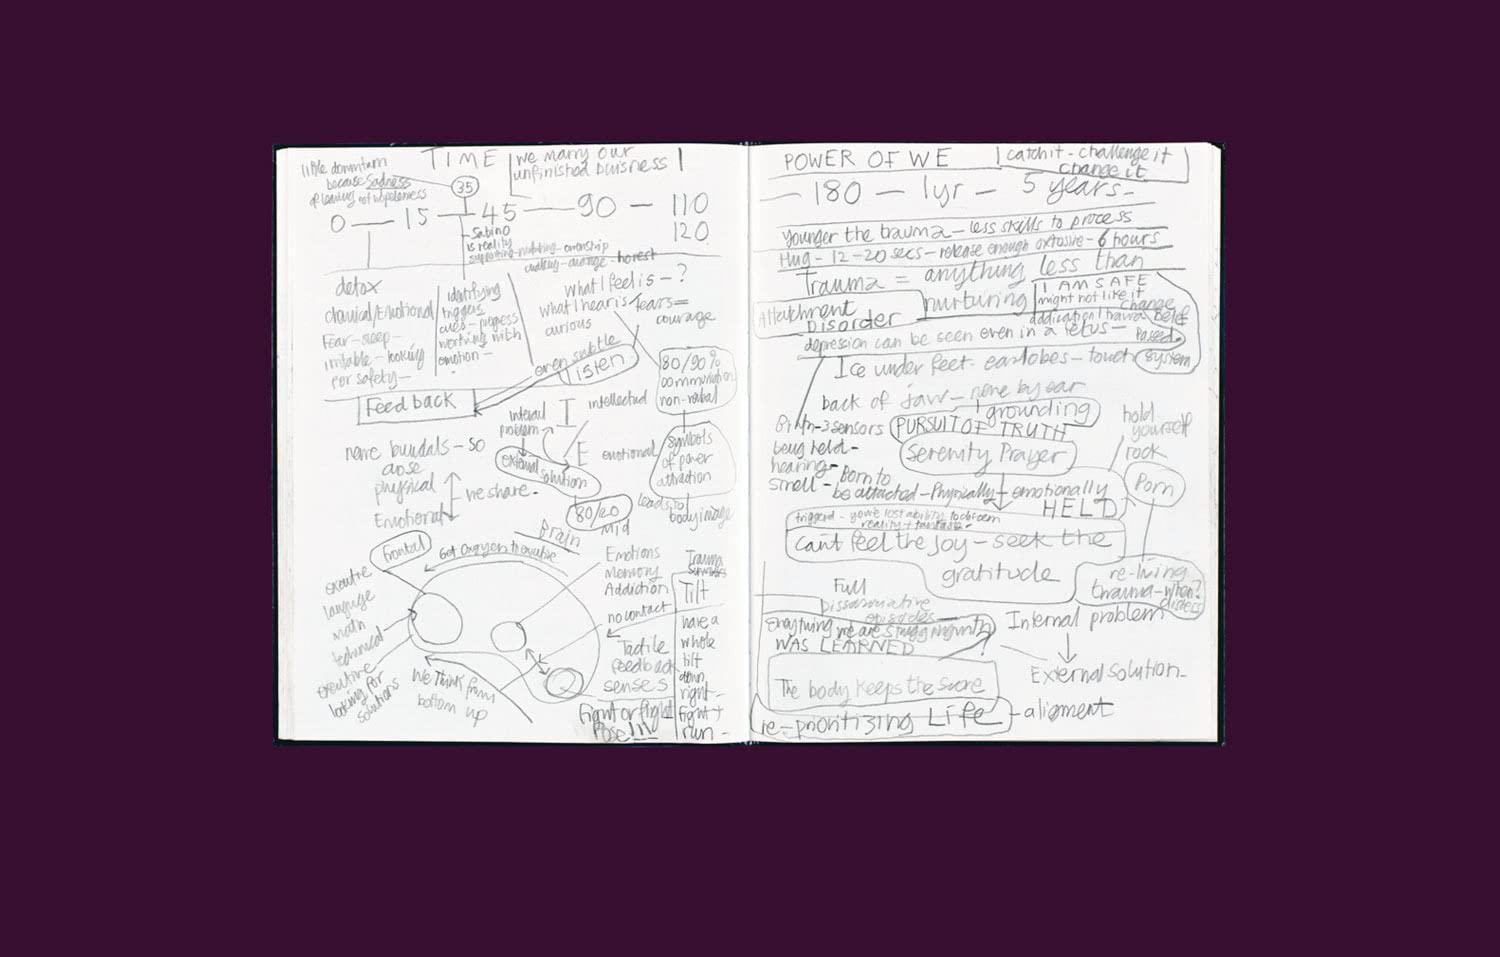 TIME
we marry our
unfinished buisness
because Sadness
of leaving not hopelessness
35
0 — 15 — 45 — 90 — 110
120
Sabino
is reality
supporting - nurturing - ownership
challenge - change - honest
detox
chemical/Emotional
Fear - sleep -
irritable - looking
for safety -
identifying
triggers
cues - progress
working with
emotion -
what I feel is - ?
what I hear is
curious
tears =
courage
even subtle
listen
Feedback
80/90%
communication
non-verbal
symbols
of power
attraction
leads to
body image
internal
problem
external
solution
I
intellectual
E
emotional
80/20
nerve bundals - so
close
physical
Emotional
we share -
Brain
mid
frontal
Get oxygen to executive
executive
language
math
technical
executive
looking for
solutions
We Think from
bottom up
Emotions
Memory
Addiction
no contact
Tactile
feedback
senses
Fight or flight
Trauma
Tilt
have a
whole
tilt
down
right -
fight +
run -
POWER OF WE
catch it - challenge it
change it
180 — 1yr — 5 years -
younger the trauma - less skills to process
Hug - 12 - 20 secs - release enough oxtosive - 6 hours
Trauma = anything less than
nurturing
I AM SAFE
might not like it
Change
addication/trauma Belief
system
Attatchment
Disorder
depression can be seen even in a fetus -
Ice under feet - earlobes - touch
back of jaw - nerve by ear
grounding
Birth - 3 sensors
being held -
hearing -
smell -
PURSUIT OF TRUTH
Serenity Prayer
hold
yourself
rock
Born to
be attached - Physically + emotionally
HELD
Porn
triggered - you've lost ability to discern
reality + fantasy -
can't feel the joy - seek the
gratitude
re-living
trauma - when?
Full
Dissasosiative
episodes
everything we are struggling with
WAS LEARNED
Internal problem
External solution -
The body keeps the score
re-prioritizing Life - alignment